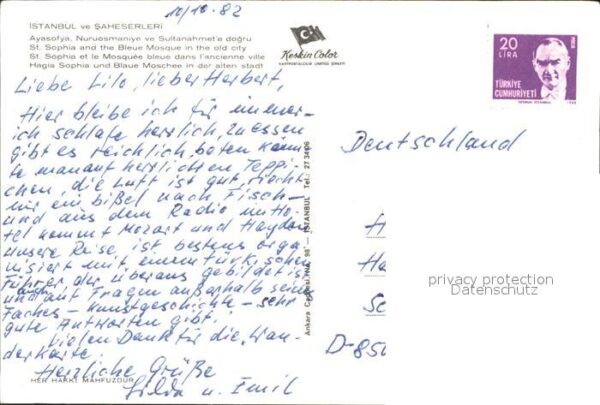 10/10.82
İSTANBUL ve ŞAHESERLERİ
Ayasofya, Nuruosmaniye ve Sultanahmet'e doğru
St. Sophia and the Bleue Mosque in the old city
St. Sophia et le Mosquée bleue dans l'ancienne ville
Hagia Sophia und Blaue Moschee in der alten stadt
Keskin Color
KARTPOSTALCILIK LIMITED ŞİRKETİ
20
LİRA
TÜRKİYE
CUMHURİYETİ
Liebe Lilo, lieber Herbert,
Hier bleibe ich für immer –
ich schlafe herrlich, zu essen
gibt es reichlich, beten könn-
te man auf herrlichen Teppi-
chen, die Luft ist gut, riecht
nur ein bißel nach Fisch –
und aus dem Radio im Ho-
tel kommt Mozart und Haydn.
Unsere Reise ist bestens orga-
nisiert mit einem türkischen
Führer der überaus gebildet ist
und auch auf Fragen außerhalb seines
Faches – Kunstgeschichte – sehr
gute Antworten gibt.
Vielen Dank für die Wan-
derkarte.
Herzliche Grüße
Hilda u. Emil
HER HAKKI MAHFUZDUR
Ankara Caddesi No. 98 — İSTANBUL Tel.: 27 34 06
Deutschland
H
Ha
Sc
D-850
privacy protection
Datenschutz